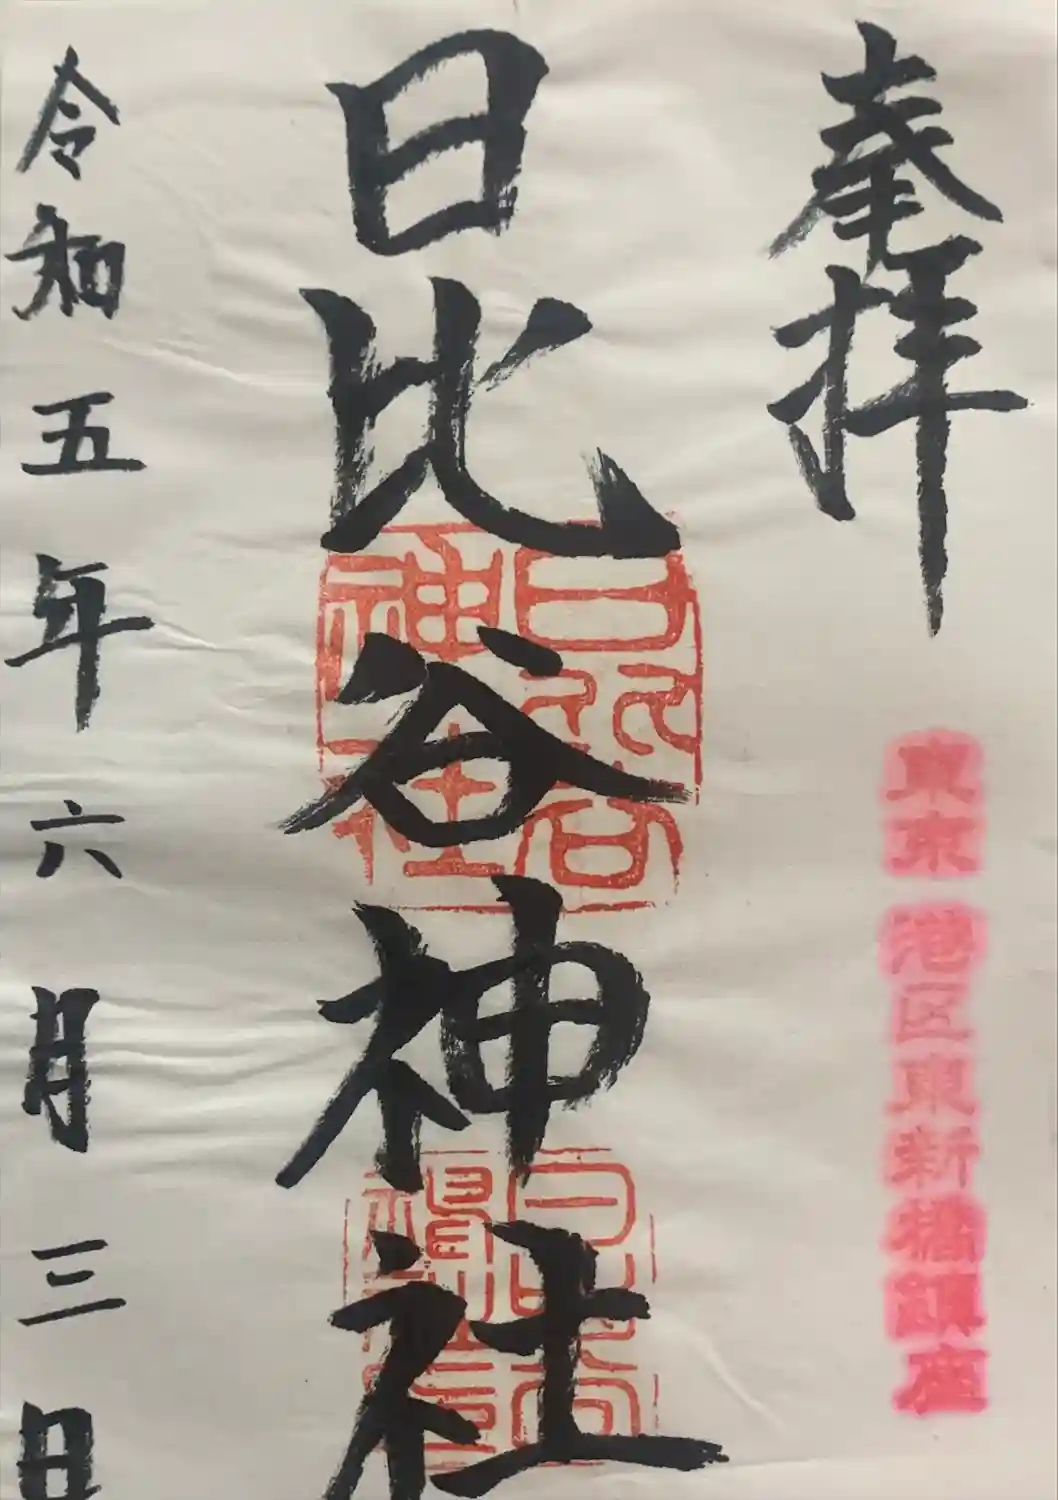 奉拝
東京 港区東新橋鎮座
日比谷神社
日比谷神社
令和五年六月三日